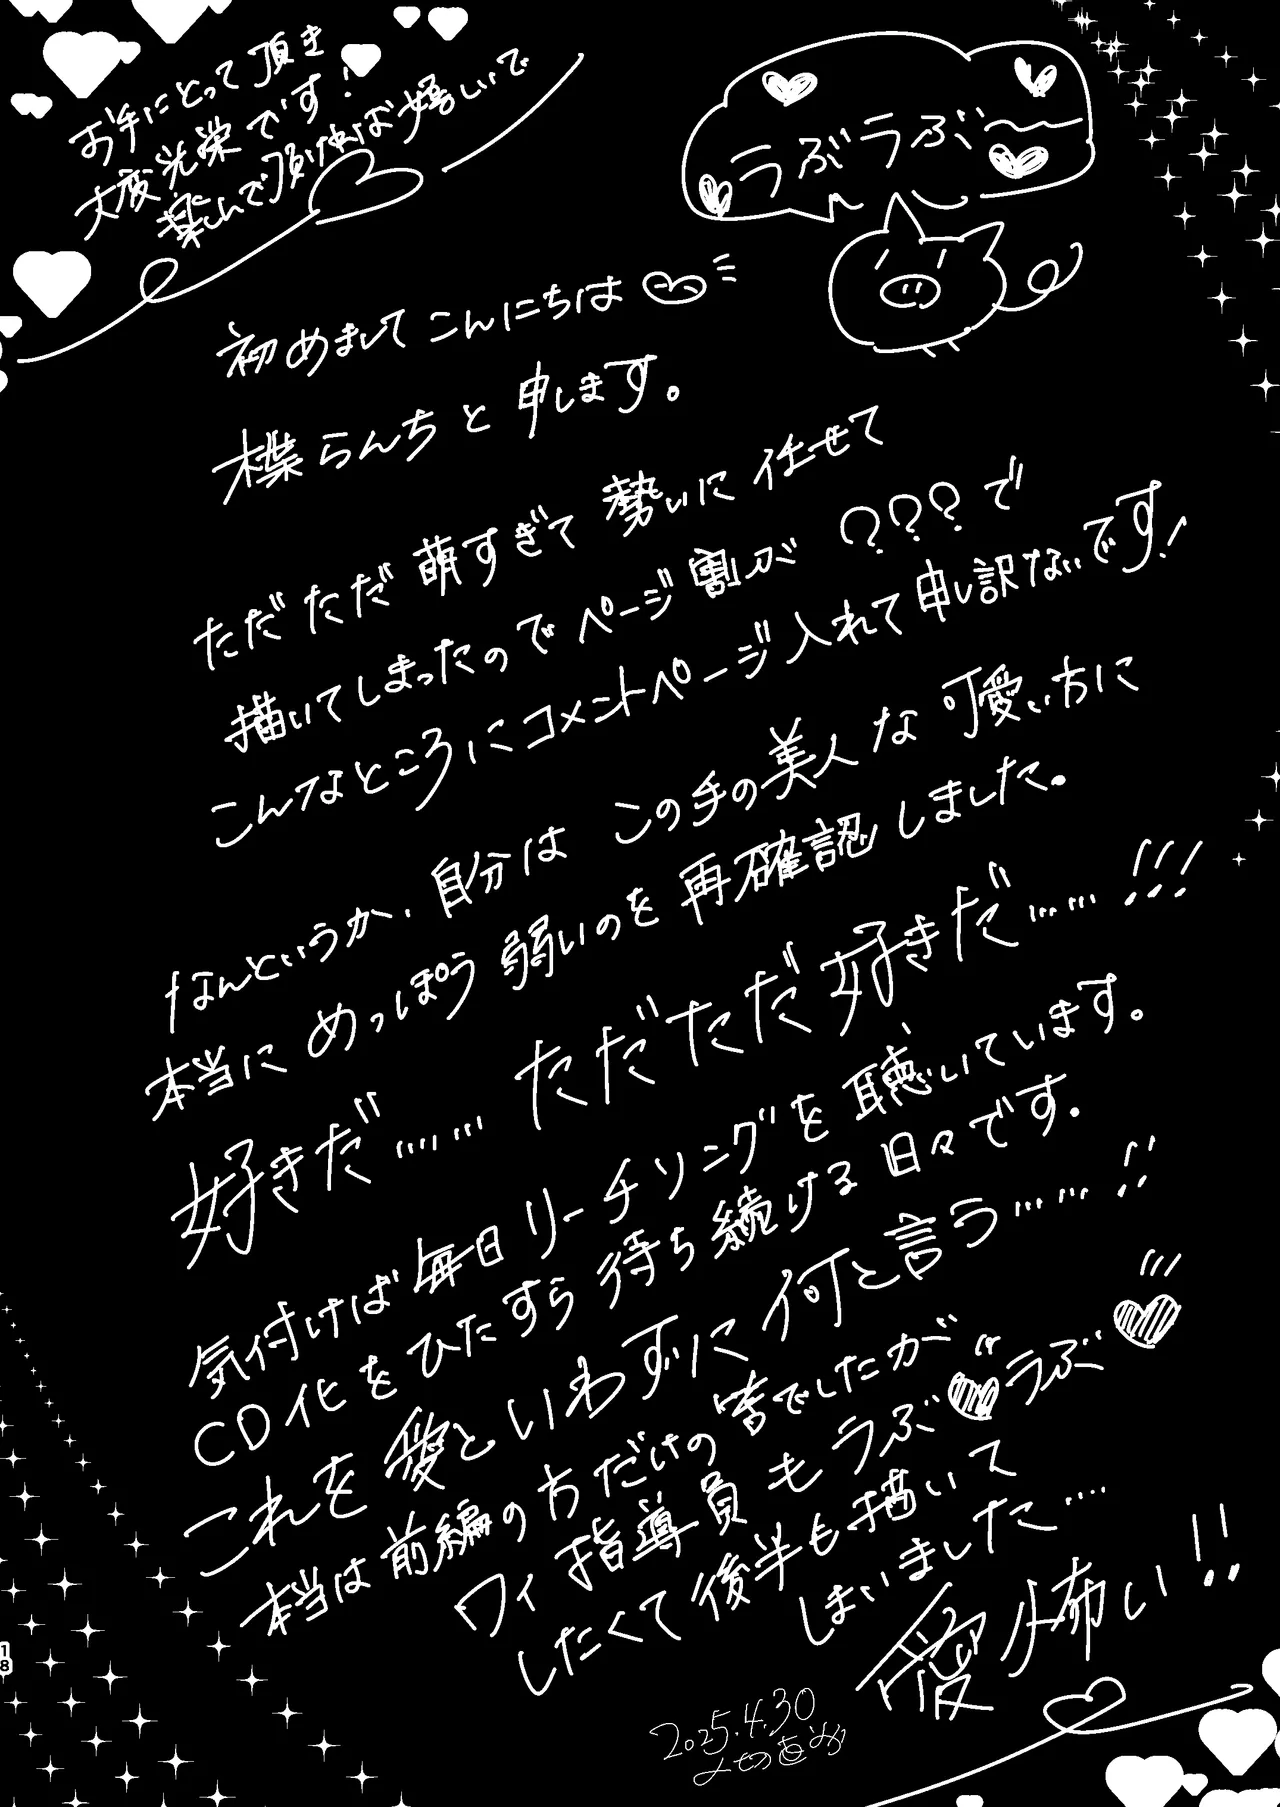 お手にとって頂き
大変光栄です!
楽しんで頂ければ嬉しいで
ラぶラぶ〜
初めましてこんにちは
楪らんちと申します。
ただただ萌すぎて勢いに任せて
描いてしまったのでページ割が???で
こんなところにコメントページ入れて申し訳ないです!
なんというか、自分はこの手の美人な可愛い方に
本当にめっぽう弱いのを再確認しました。
好きだ…… ただただ好きだ……!!!
気付けば毎日リーチソングを聴いています。
CD化をひたすら待ち続ける日々です。
これを愛といわずに何と言う……!!
本当は前編の方だけの筈でしたが
ワイ指導員もラぶ♥ラぶ♥
したくて後半も描いて
しまいました….
愛怖い!!
2025.4.30
18